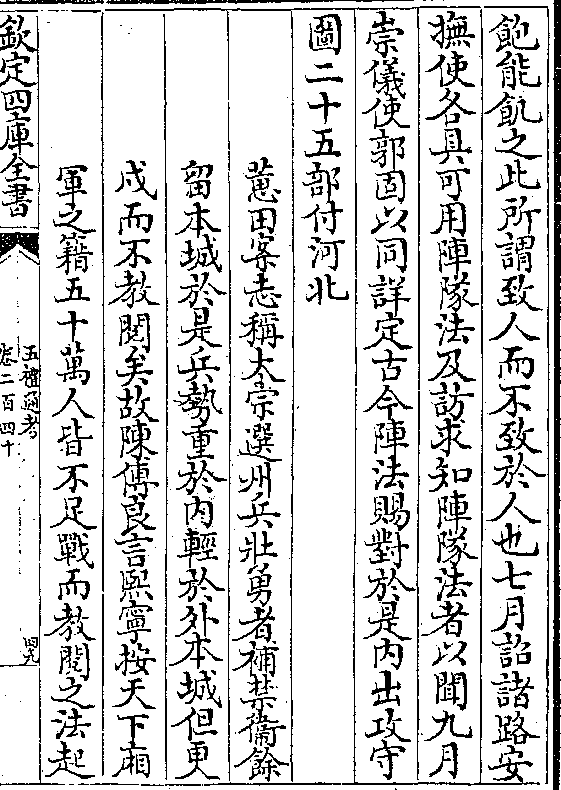 飽能飢之此所謂致人而不致於人也七月詔諸路安
撫使各具可用陣隊法及訪求知陣隊法者以聞九月
崇儀使郭固以同詳定古今陣法賜對於是内出攻守
圖二十五部付河北
蕙田案志稱太宗選州兵壯勇者補禁衞餘
留本城於是兵勢重於内輕於外本城但更
戍而不教閱矣故陳傅良言熙寧按天下廂
軍之籍五十萬人皆不足戰而教閱之法起
欽定四庫全書
五禮通考
卷二百四十
四九